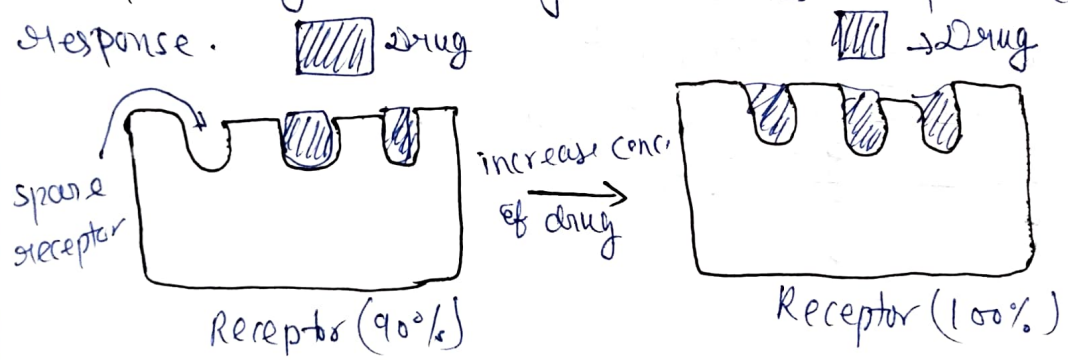 response.
Drug
→Drug
spare
receptor
increase conc.
of drug
Receptor (90%)
Receptor (100%)